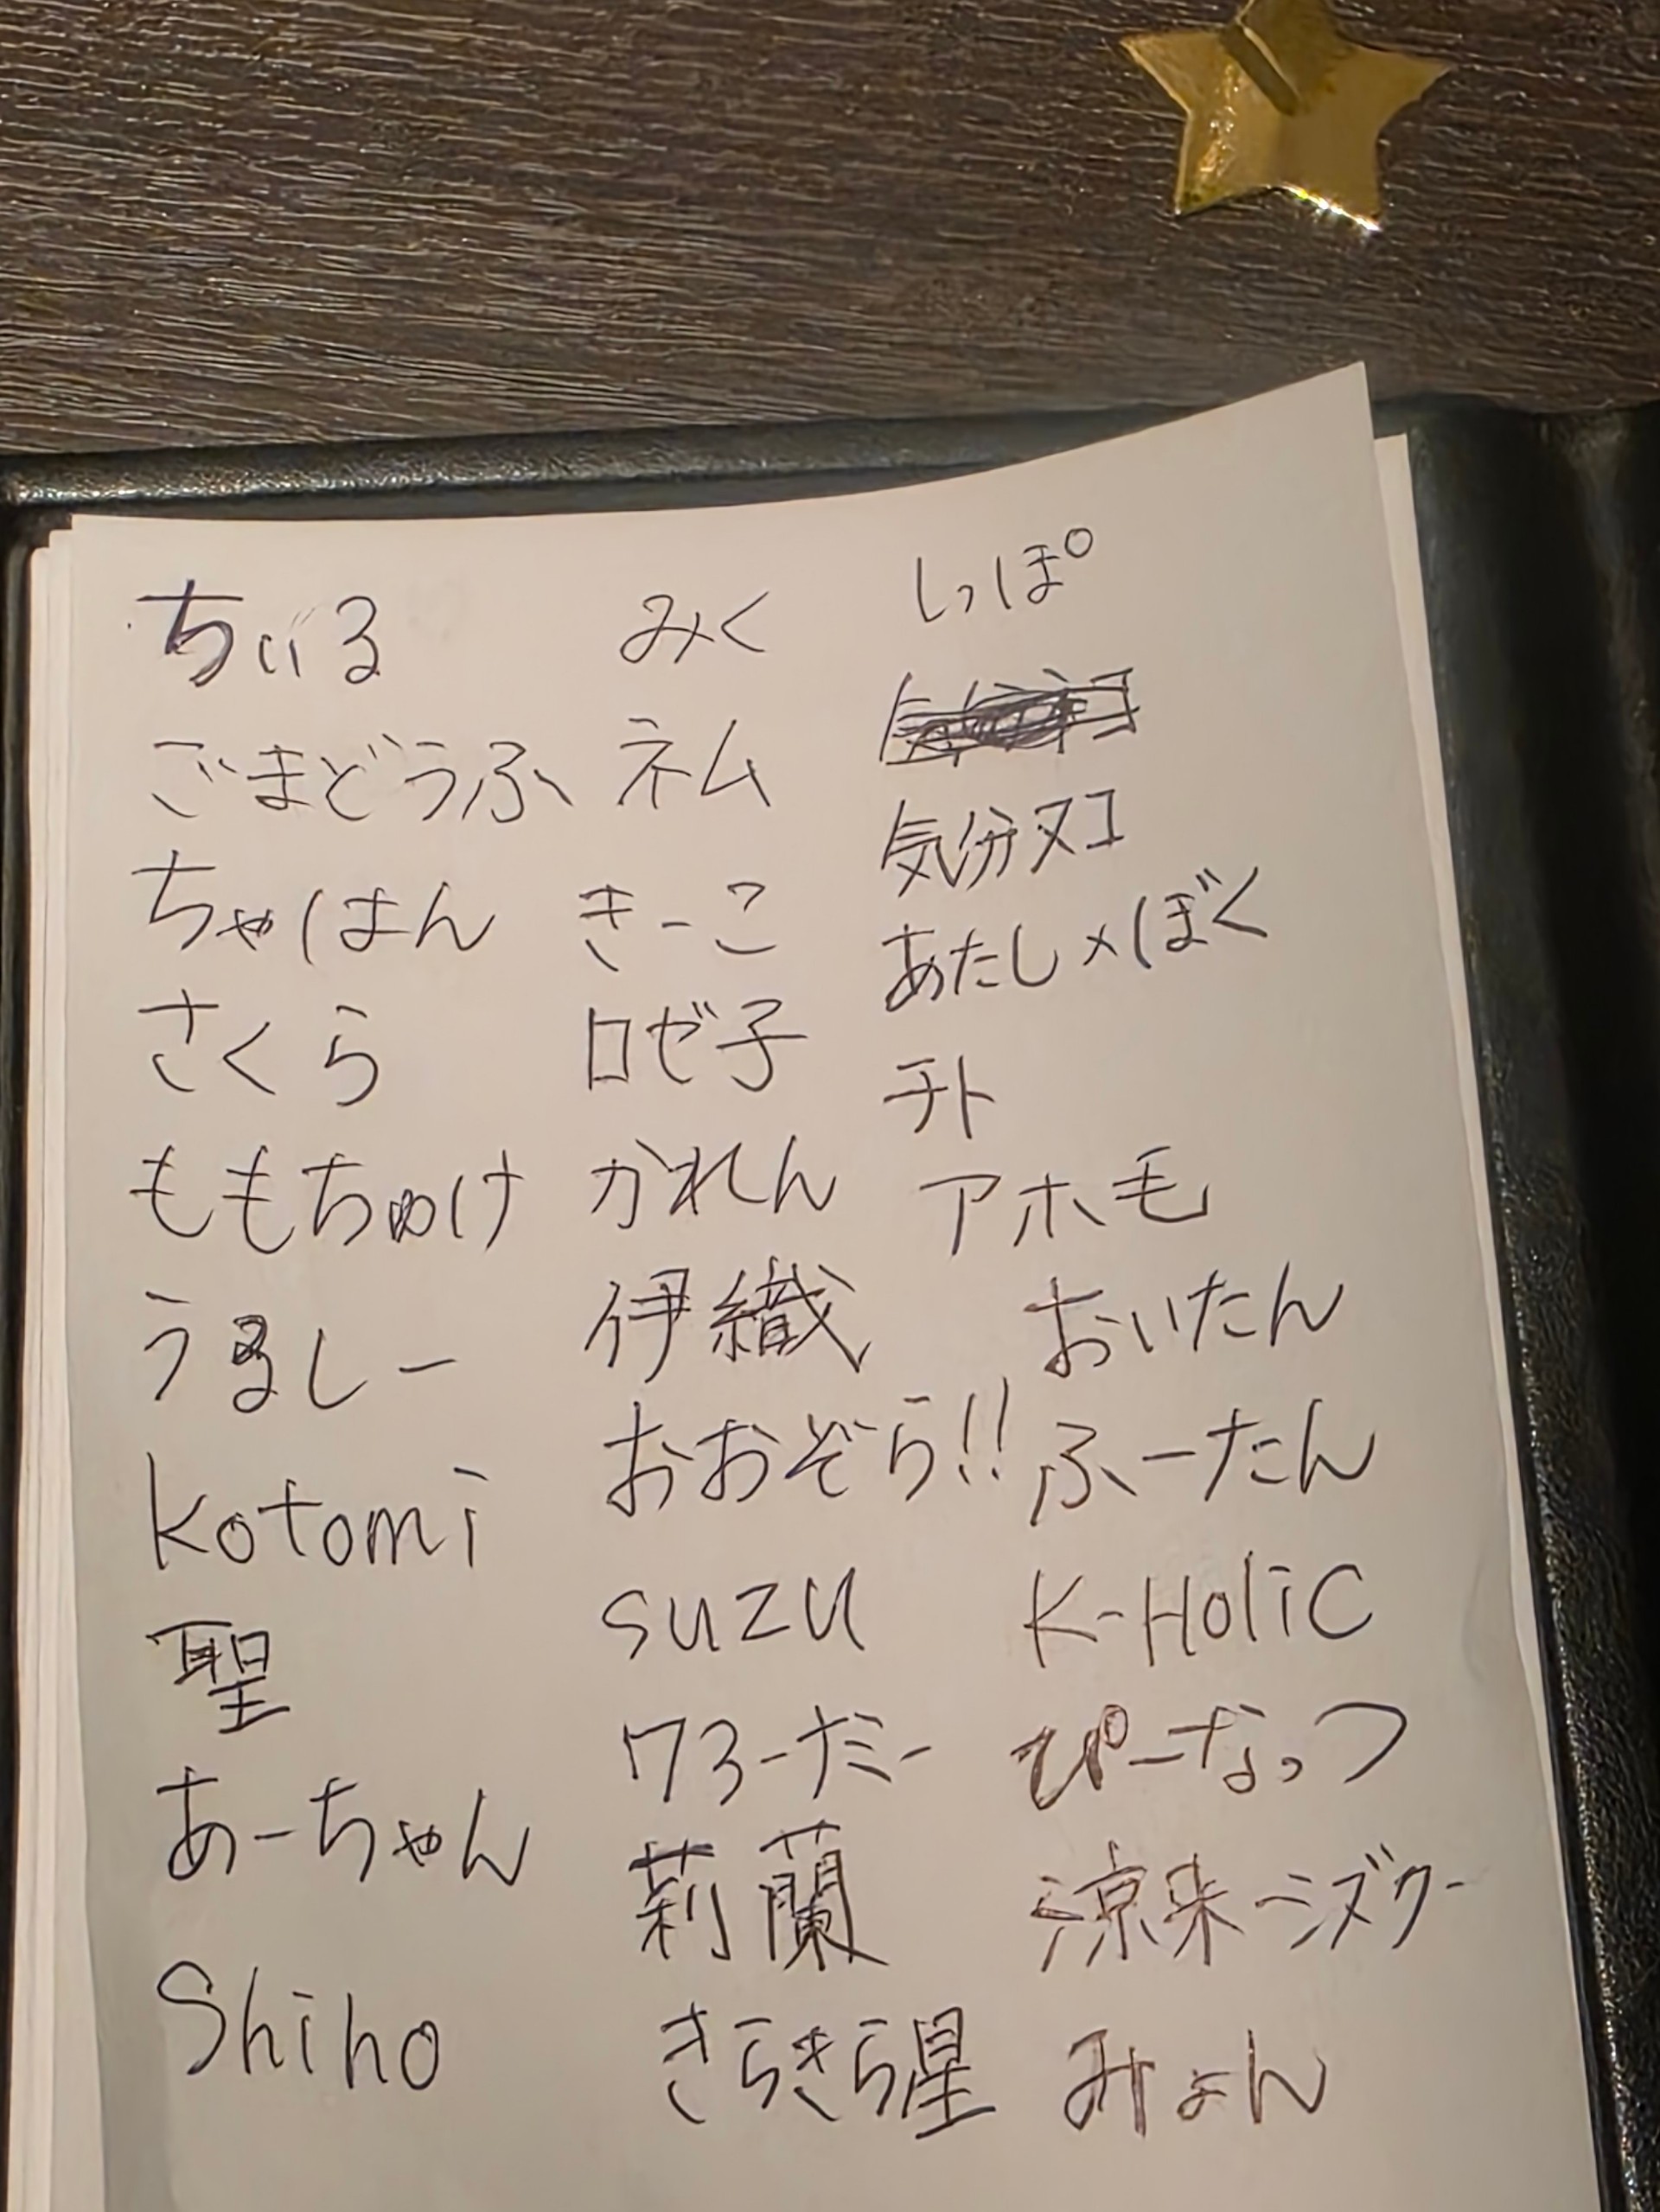 ちぃる
ごまどうふ
ちゃはん
さくら
ももちゅけ
うるしー
kotomi
聖
あーちゃん
Shiho
みく
ネム
きーこ
ロゼ子
かれん
伊織
おおぞら!!
suzu
ワヨーダミー
莉蘭
きらきら星
しっぽ
気分ヌコ
あたし×ぼく
チト
アホ毛
おいたん
ふーたん
K-HoliC
ぴーなっつ
涼朱ーミズクー
みょん